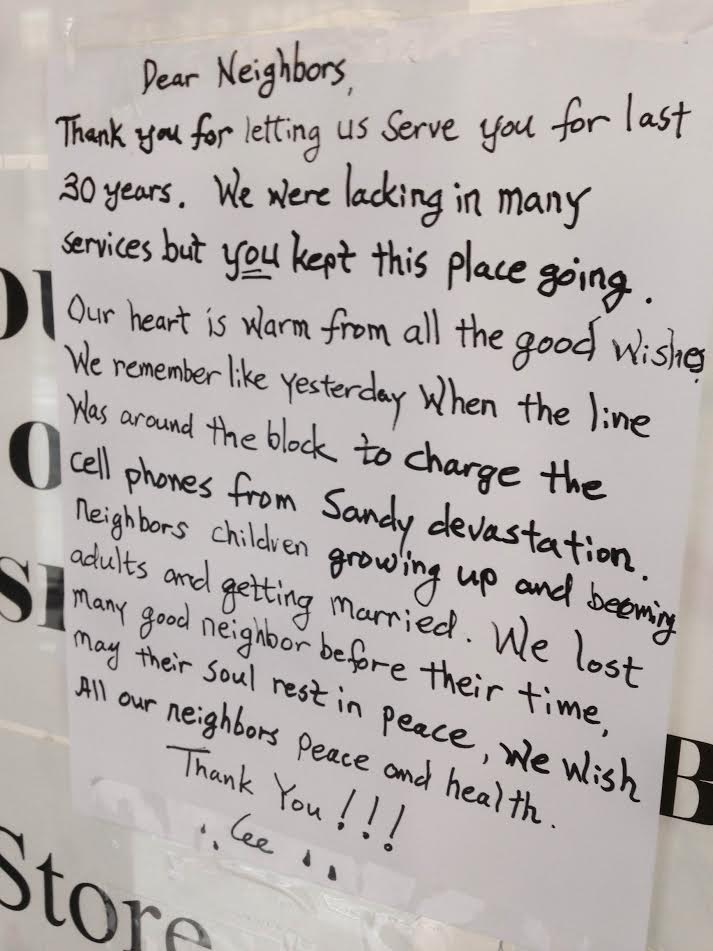 Dear Neighbors,
Thank you for letting us serve you for last
30 years. We were lacking in many
services but you kept this place going.
Our heart is warm from all the good wishes
We remember like yesterday When the line
Was around the block to charge the
cell phones from Sandy devastation.
Neighbors children growing up and becoming
adults and getting married. We lost
many good neighbor before their time,
may their soul rest in peace, We Wish
All our neighbors peace and health.
Thank You!!!
Lee
Store